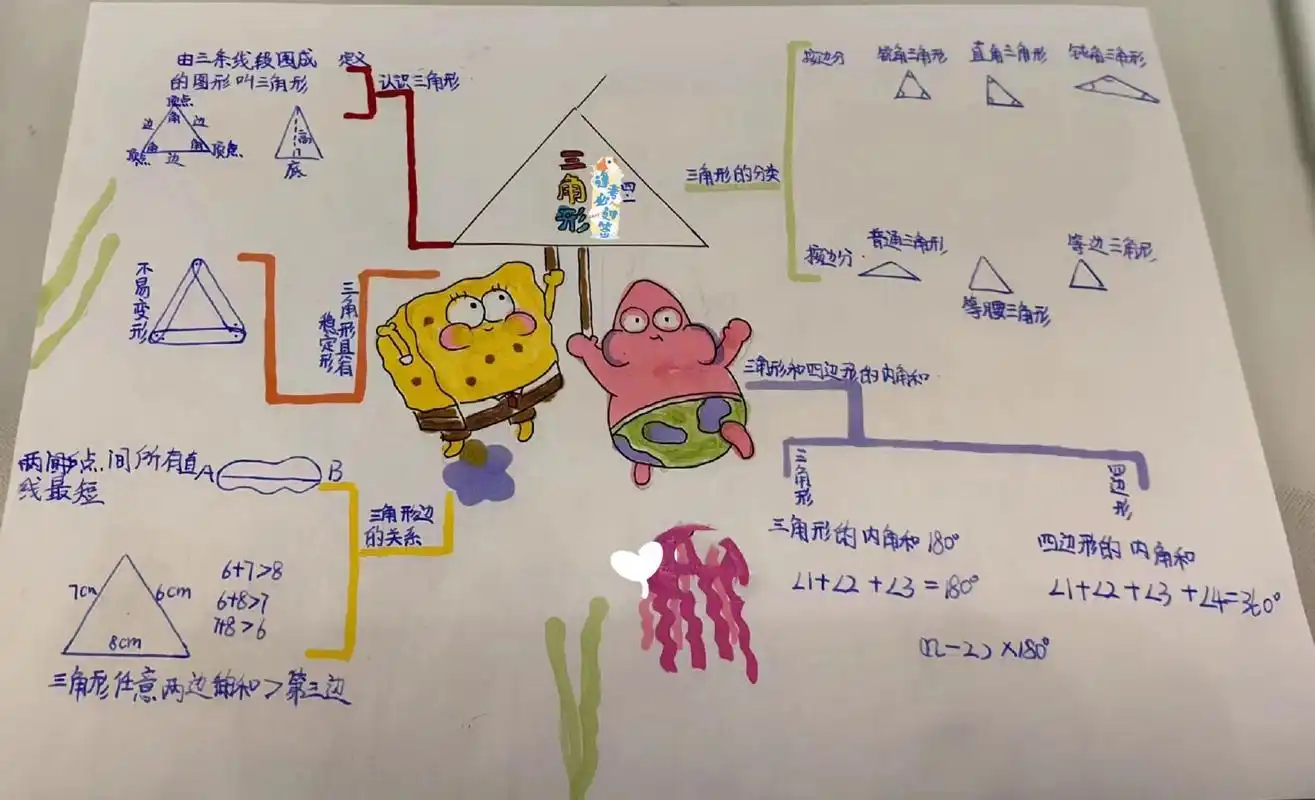 由三条线段围成
的图形叫三角形
定义
认识三角形
顶点
边
角
边
角
角
顶点
边
顶点
高
底
三角形
四
三角形的分类
按边分
锐角三角形
直角三角形
钝角三角形
按边分
普通三角形
等腰三角形
等边三角形
不易变形
三角形具有
稳定形
三角形和四边形的内角和
三角形
四边形
三角形的内角和180°
∠1+∠2+∠3=180°
四边形的内角和
∠1+∠2+∠3+∠4=360°
(n-2)×180°
点间所有直
线最短
A
B
三角形边
的关系
7cm
6cm
8cm
6+7>8
6+8>7
7+8>6
三角形任意两边的和>第三边